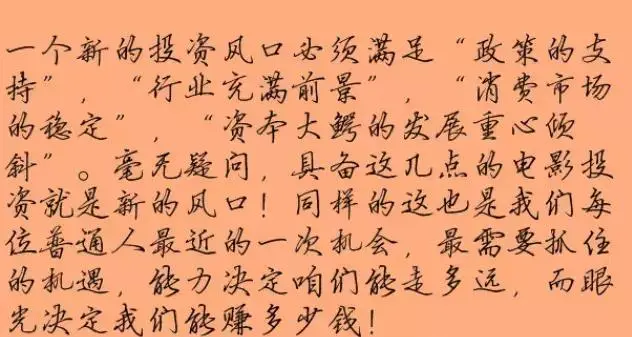 一个新的投资风口必须满足“政策的支
持”，“行业充满前景”，“消费市场
的稳定”，“资本大鳄的发展重心倾
斜”。毫无疑问，具备这几点的电影投
资就是新的风口！同样的这也是我们每
位普通人最近的一次机会，最需要抓住
的机遇，能力决定咱们能走多远，而眼
光决定我们能赚多少钱！